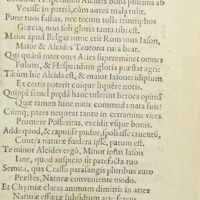 Vexisse in patriā, cūm aurea mala tulit.
Pone tuos fastus, nec tecum tolle triumphos
Græcia; non soli gloria tanta tibi est.
Maior apud Belgas nunc erit Roma tuus Iason,
Maior & Alcides Teutona rura beat.
Qui quātū inter oues Aries supereminet omnes
Fuluus, & Hesperidum gloria præstat agri:
Tātùm hic Alcida est, & maior Iasone: idipsum
Ex certis poteit cuique liquere notis.
Quippe semel prędā hanc tulerunt heroes opimā
Quæ tamen hunc natis commoda nata suis?
Cumq; pares nequeat tanto in certamine vires
Promere Posteritas, excidit vsque bonis.
Adde quod, & rapuisse pudor, spoliasse cruentū,
Contra naturæ fœdera isse, patrum.
Te minor Alcides ergò, Minor ipsus Iason
Iane, quod auspicio iit patefacta tuo
Semita, qua Craßis parasangis pluribus auro
Præstes, Naturæ conueniente modo.
Et Chymiæ claras animum dimittis in artes
Naturæ effœtæ subsidium